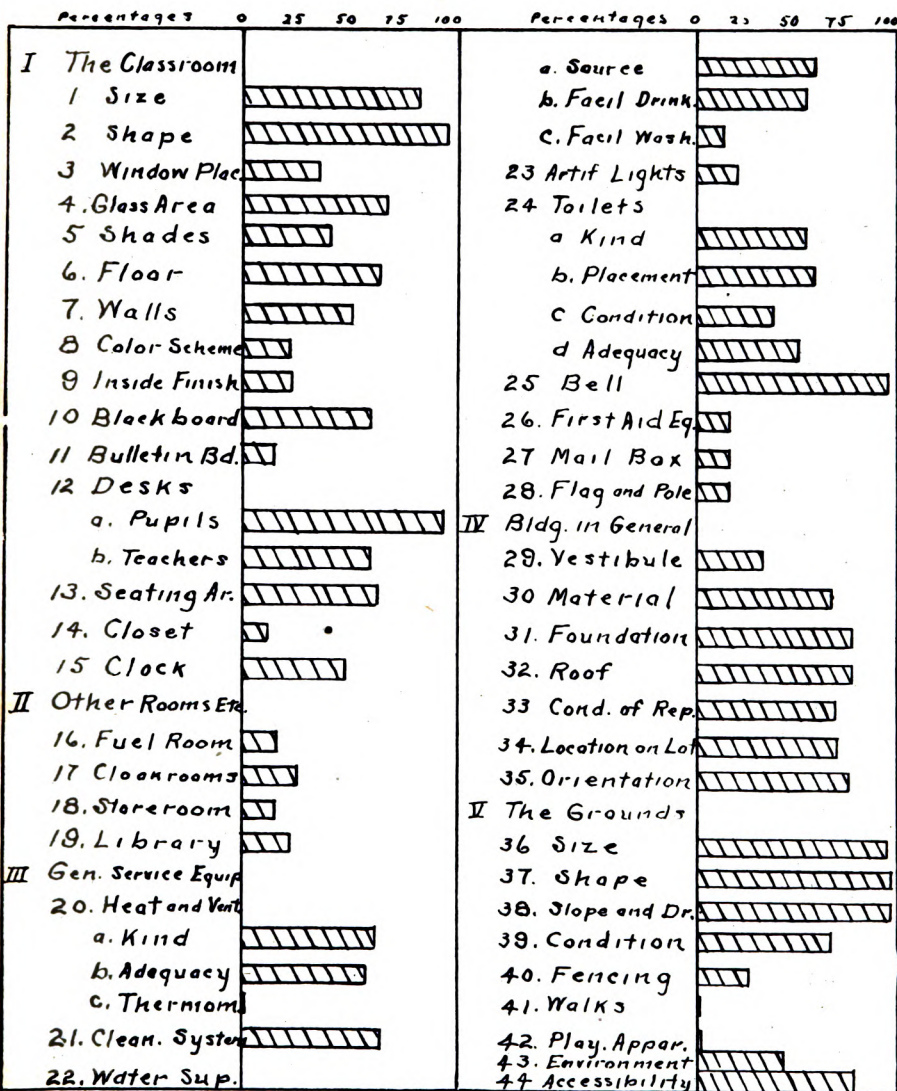 Percentages 0 25 50 75 100
I The Classroom
1 Size
2 Shape
3 Window Plac.
4. Glass Area
5 Shades
6. Floor
7. Walls
8 Color Scheme
9 Inside Finish
10 Blackboard
11 Bulletin Bd.
12 Desks
a. Pupils
b. Teachers
13. Seating Ar.
14. Closet
15 Clock
II Other Rooms Etc.
16. Fuel Room
17 Cloakrooms
18. Storeroom
19. Library
III Gen. Service Equip
20. Heat and Vent
a. Kind
b. Adequacy
c. Thermom
21. Clean. System
22. Water Sup.
Percentages 0 25 50 75 100
a. Source
b. Facil Drink.
c. Facil Wash.
23 Artif Lights
24 Toilets
a Kind
b. Placement
c Condition
d Adequacy
25 Bell
26. First Aid Eq.
27 Mail Box
28. Flag and Pole
IV Bldg. in General
29. Vestibule
30 Material
31. Foundation
32. Roof
33 Cond. of Rep.
34. Location on Lot
35. Orientation
V The Grounds
36 Size
37. Shape
38. Slope and Dr.
39. Condition
40. Fencing
41. Walks
42. Play. Appar.
43. Environment
44 Accessibility